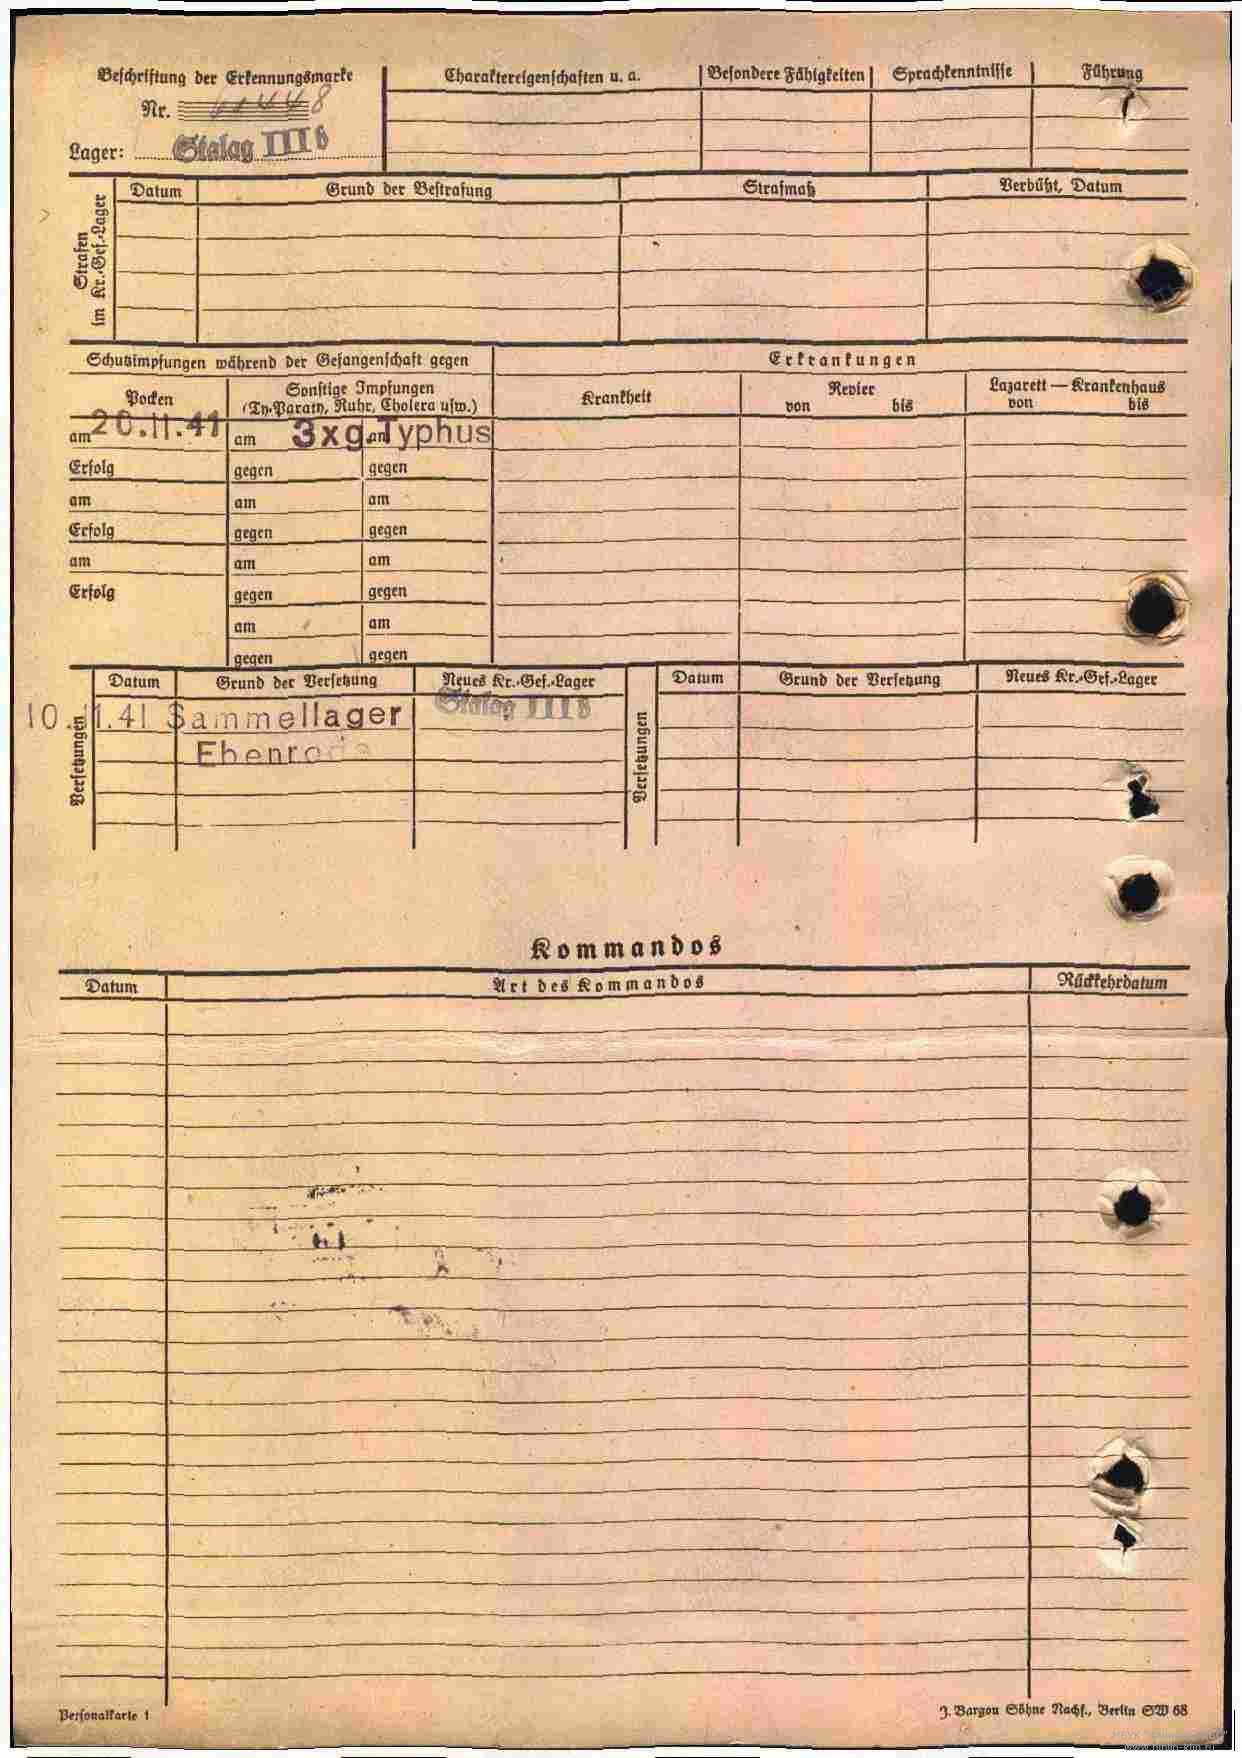 Beschriftung der Erkennungsmarke
Nr. 61448
Lager: Stalag III B
Charaktereigenschaften u. a.
Besondere Fähigkeiten
Sprachkenntnisse
Führung
Strafen im Kr.-Gef.-Lager
Datum
Grund der Bestrafung
Strafmaß
Verbüßt, Datum
Schutzimpfungen während der Gefangenschaft gegen
Erkrankungen
Pocken
Sonstige Impfungen
(Ty.-Paraty, Ruhr, Cholera usw.)
Krankheit
Revier
von bis
Lazarett — Krankenhaus
von bis
am 20.11.41 am 3xg. am Typhus
Erfolg gegen gegen
am am am
Erfolg gegen gegen
am am am
Erfolg gegen gegen
am am
gegen gegen
Versetzungen
Datum
Grund der Versetzung
Neues Kr.-Gef.-Lager
10.11.41 Sammellager Stalag III B
Ebenrode
Versetzungen
Datum
Grund der Versetzung
Neues Kr.-Gef.-Lager
Kommandos
Datum
Art des Kommandos
Rückkehrdatum
Personalkarte 1
J. Bargou Söhne Nachf., Berlin SW 68